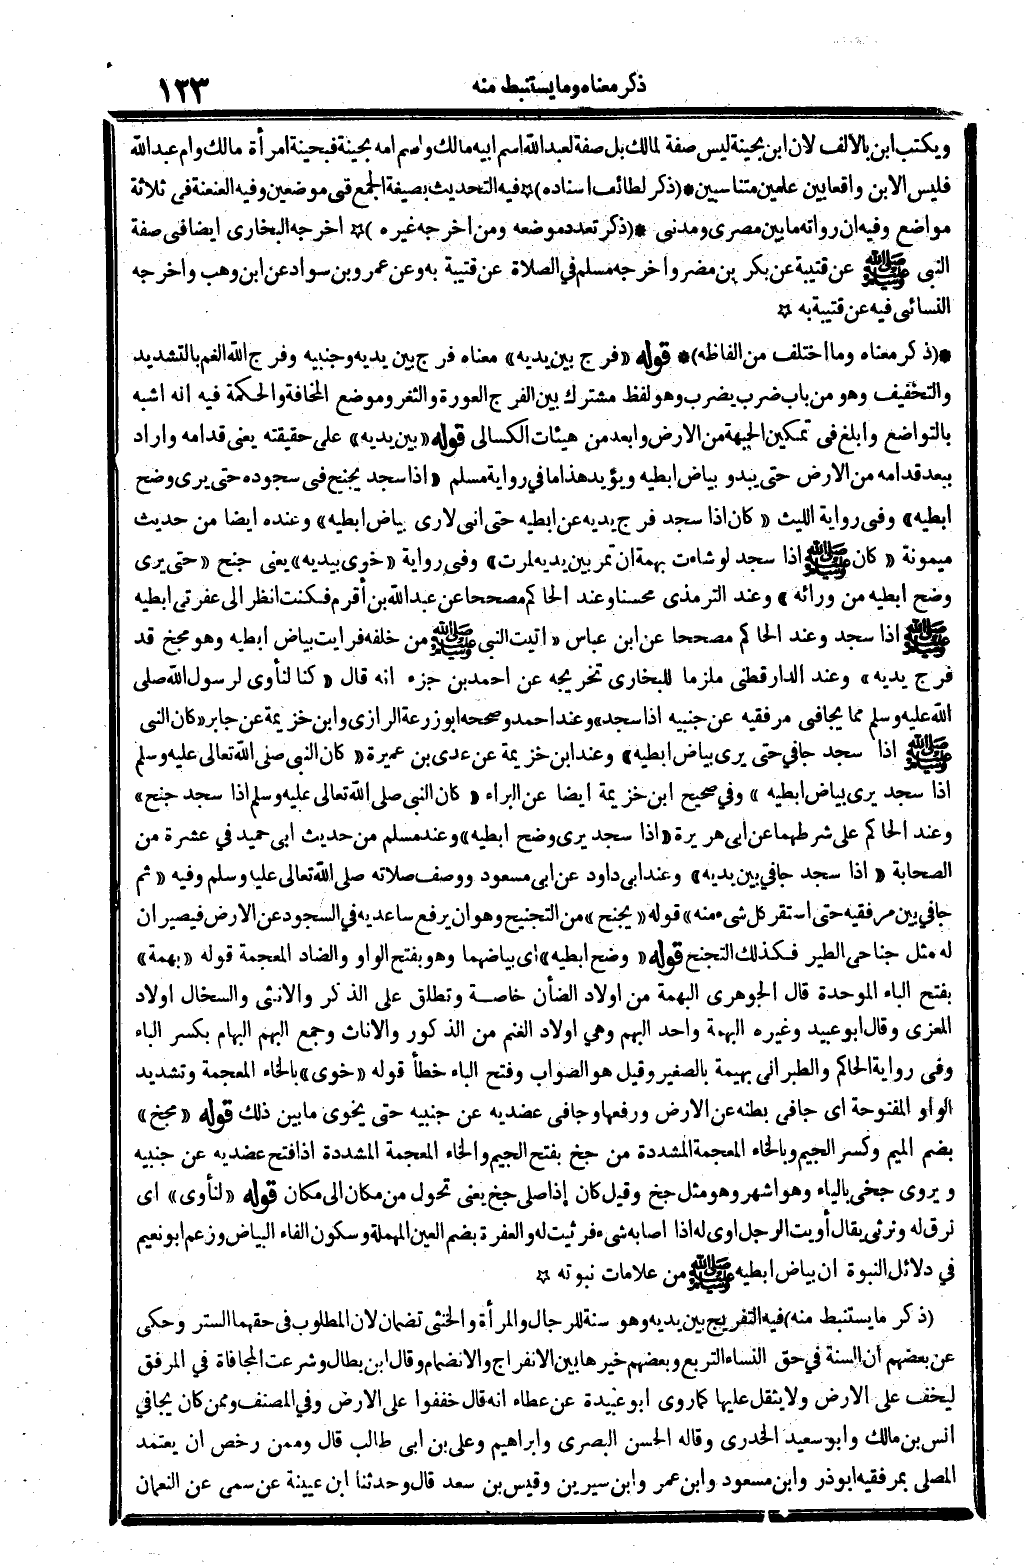 ذكر معناه وما يستنبط منه ١٢٣
ويكتب ابن بالالف لان ابن بحينة ليس صفة لمالك بل صفة لعبد الله اسم ابيه مالك واسم امه بحينة فبحينة امرأة مالك وام عبد الله
فليس الابن واقعا بين علمين متناسبين *(ذكر لطائف اسناده)* فيه التحديث بصيغة الجمع في موضعين وفيه العنعنة في ثلاثة
مواضع وفيه ان رواته ما بين مصرى ومدنى *(ذكر تعدد موضعه ومن اخرجه غيره)* اخرجه البخارى ايضا فى صفة
النبى ﷺ عن قتيبة عن بكر بن مضر واخرجه مسلم في الصلاة عن قتيبة به وعن عمرو بن سواد عن ابن وهب واخرجه
النسائى فيه عن قتيبة به *
*(ذكر معناه وما اختلف من الفاظه)* قوله «فرج بين يديه» معناه فرج بين يديه وجنبيه وفرج الله الغم بالتشديد
والتخفيف وهو من باب ضرب يضرب وهو لفظ مشترك بين الفرج العورة والثغر وموضع المخافة والحكمة فيه انه اشبه
بالتواضع وابلغ فى تمكين الجبهة من الارض وابعد من هيئات الكسالى قوله «بين يديه» على حقيقته يعنى قدامه واراد
ببعد قدامه من الارض حتى يبدو بياض ابطيه ويؤيد هذا ما في رواية مسلم «اذا سجد يجنح فى سجوده حتى يرى وضح
ابطيه» وفى رواية الليث «كان اذا سجد فرج يديه عن ابطيه حتى انى لارى بياض ابطيه» وعنده ايضا من حديث
ميمونة «كان ﷺ اذا سجد لو شاءت بهمة ان تمر بين يديه لمرت» وفى رواية «خوى بيديه» يعنى جنح «حتى يرى
وضح ابطيه من ورائه» وعند الترمذى محسنا وعند الحاكم مصححا عن عبد الله بن أقرم فكنت انظر الى عفرتى ابطيه
ﷺ اذا سجد وعند الحاكم مصححا عن ابن عباس «اتيت النبى ﷺ من خلفه فرايت بياض ابطيه وهو مجخ قد
فرج يديه» وعند الدارقطنى ملزما للبخارى تخريجه عن احمد بن جزء انه قال «كنا لنأوى لرسول الله صلى
الله عليه وسلم مما يجافى مرفقيه عن جنبيه اذا سجد» وعند احمد وصححه ابو زرعة الرازى وابن خزيمة عن جابر «كان النبى
ﷺ اذا سجد جافي حتى يرى بياض ابطيه» وعند ابن خزيمة عن عدى بن عميرة «كان النبى صلى الله تعالى عليه وسلم
اذا سجد يرى بياض ابطيه» وفي صحيح ابن خزيمة ايضا عن البراء «كان النبى صلى الله تعالى عليه وسلم اذا سجد جنح»
وعند الحاكم على شرطهما عن ابى هريرة «اذا سجد يرى وضح ابطيه» وعند مسلم من حديث ابى حميد في عشرة من
الصحابة «اذا سجد جافي بين يديه» وعند ابى داود عن ابى مسعود ووصف صلاته صلى الله تعالى عليه وسلم وفيه «ثم
جافي بين مرفقيه حتى استقر كل شىء منه» قوله «يجنح» من التجنيح وهو ان يرفع ساعديه في السجود عن الارض فيصيران
له مثل جناحى الطير فكذلك التجنح قوله «وضح ابطيه» اى بياضهما وهو بفتح الواو والضاد المعجمة قوله «بهمة»
بفتح الباء الموحدة قال الجوهرى البهمة من اولاد الضأن خاصة وتطلق على الذكر والانثى والسخال اولاد
المعزى وقال ابو عبيد وغيره البهمة واحد البهم وهي اولاد الغنم من الذكور والاناث وجمع البهم البهام بكسر الباء
وفى رواية الحاكم والطبرانى بهيمة بالصغير وقيل هو الصواب وفتح الباء خطأ قوله «خوى» بالخاء المعجمة وتشديد
الواو المفتوحة اى جافى بطنه عن الارض ورفعها وجافى عضديه عن جنبيه حتى يخوى ما بين ذلك قوله «مجخ»
بضم الميم وكسر الجيم وبالخاء المعجمة المشددة من جخ بفتح الجيم والخاء المعجمة المشددة اذا فتح عضديه عن جنبيه
ويروى جخى بالياء وهو اشهر وهو مثل جخ وقيل كان إذا صلى جخ يعنى تحول من مكان الى مكان قوله «لنأوى» اى
نرق له ونرثى يقال أويت الرجل اوى له اذا اصابه شىء فرثيت له والعفرة بضم العين المهملة وسكون الفاء البياض وزعم ابو نعيم
في دلائل النبوة ان بياض ابطيه ﷺ من علامات نبوته *
(ذكر ما يستنبط منه) فيه التفريج بين يديه وهو سنة للرجال والمرأة والخنثى تضمان لان المطلوب فى حقهما الستر وحكى
عن بعضهم أن السنة في حق النساء التربع وبعضهم خيرها بين الانفراج والانضمام وقال ابن بطال وشرعت المجافاة في المرفق
ليخف على الارض ولا يثقل عليها كما روى ابو عبيدة عن عطاء انه قال خففوا على الارض وفي المصنف وممن كان يجافي
انس بن مالك وابو سعيد الخدرى وقاله الحسن البصرى وابراهيم وعلى بن ابى طالب قال وممن رخص ان يعتمد
المصلى بمرفقيه ابو ذر وابن مسعود وابن عمر وابن سيرين وقيس بن سعد قال وحدثنا ابن عيينة عن سمى عن النعمان